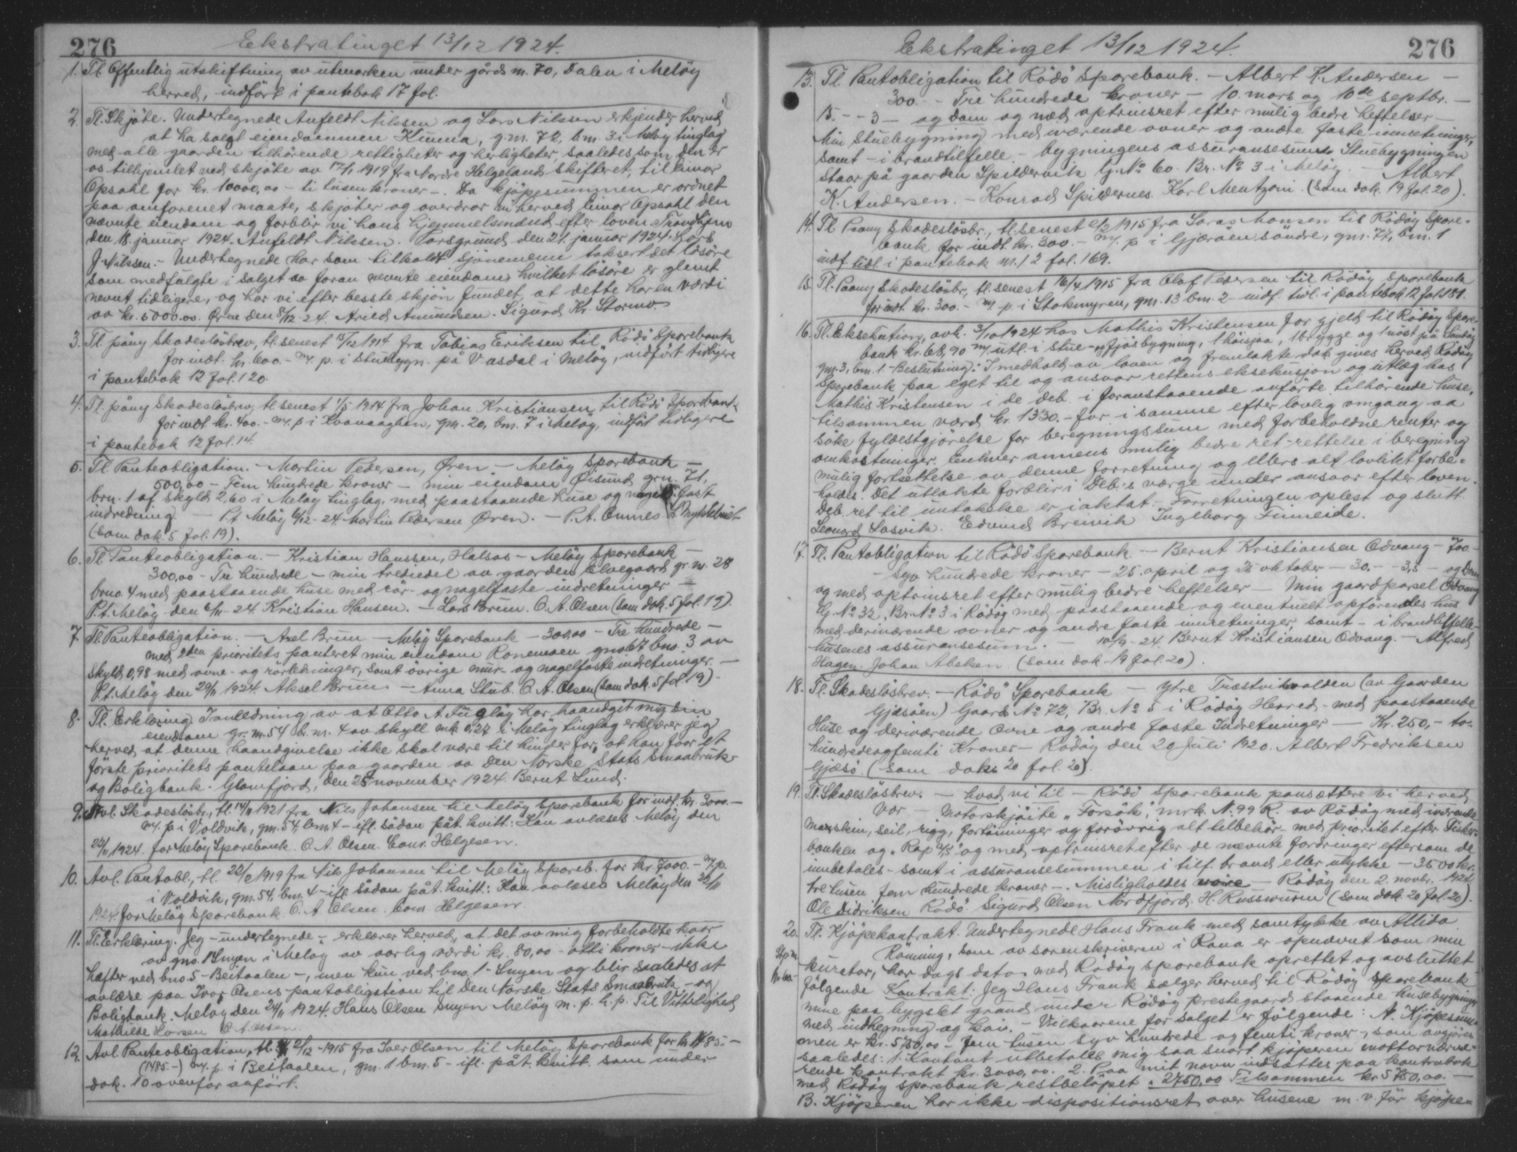 276 Ekstratinget 13/12 1924.
1. Tl. Offentlig utskiftning av utmarken under gårds nr. 70, Dalen i Meløy
herred, indført i pantebok 17 fol.
2. Tl. Skjøte. Undertegnede Anfeldt Nilsen og Lars Nilssen erkjender herved
at ha solgt eiendommen Kunna, g.nr. 72, b.nr. 3 i Meløy tinglag
med alle gaarden tilhörende rettigheter og herligheter, saaledes som den er
os tilhjemlet ved skjøte av 17/1 1919 fra Nordre Helgeland skifteret, til Einar
Opsahl for kr. 10000,00 - ti tusen kroner -. Da kjøpesummen er ordnet
paa omforenet maate, skjøter og overdrar vi herved Einar Opsahl den
nævnte eiendom og forblir vi hans hjemmelsmænd efter loven. Trondhjem
den 18. januar 1924. Anfeldt Nilsen. Porsgrund den 21. januar 1924. Lars
J. Nilssen. - Undertegnede har som tilkaldt skjønsmenn taksert det løsøre
som medfulgte i salget av foran nevnte eiendom hvilket løsøre er glemt
nevnt tidligere, og har vi efter besste skjøn fundet at dette har en værdi
av kr. 5000.00. Ørnes den 9/12-24. Arild Amundsen. Sigurd Kr. Stormo
3. Tl. påny Skadesløsbrev, tl. senest 15/12 1914 fra Tobias Eriksen til Rødø Sparebank
for indt. kr. 600.- m/ p. i stuebygn. på Vasdal i Meløy, indført tidligere
i pantebok 12 fol. 120
4. Tl. påny Skadesløsbrev, tl. senest 1/5 1914 fra Johan Kristiansen til Rødø Sparebank
for indt. kr. 400.- m/ p. i Kvaaaghen, gnr. 20, bnr. 7 i Meløy, indført tidligere
i pantebok 12 fol. 14.
5. Tl. Panteobligation. - Martin Pedersen, Øren. - Meløy Sparebank -
500,00 - Fem hundrede kroner - min eiendom Øisund grn. 71,
brn. 1 af skyld 2.60 i Meløy tinglag med paastaaende huse og nagelfast
indredning. - P.t. Meløy 6/12-24. Martin Pedersen Øren. - P. A. Ornes
(Som dok. 5 fol. 19).
6. Tl. Panteobligation. - Kristian Hanssen, Halsos - Meløy Sparebank -
300,00 - Tre hundrede - min trediedel av gaarden Elvegaard gr. nr. 28
brno 4 med paastaaende huse med rør- og nagelfaste indretninger -
P.t. Meløy den 6/11-24 Kristian Hansen. - Lars Brun. O. A. Olsen (Som dok. 5 fol. 19).
7. Tl. Panteobligation. - Axel Brun - Meløy Sparebank - 300,00 - Tre hundrede -
med prioritets panteret min eiendom Ronemoen gno 27 bno. 3 av
skyld 0,98 med ovne- og rørledninger, samt øvrige mur- og nagelfaste indretninger. -
P.t. Meløy den 29/11 1924 Aksel Brun - Anna Stub. O. A. Olsen (Som dok. 5 fol. 19).
8. Tl. Erklæring. I anledning av at Otto A. Fugløy har haandgit mig sin
eiendom gr. nr. 54 b. nr. 4 av skyll mk 0.26 i Meløy tinglag erklærer jeg
herved, at denne haandgivelse ikke skal være til hinder for, at han faar et
første prioritets pantelaan paa gaarden av Den Norske Stats Smaabruk-
og Boligbank. Glomfjord, den 25 november 1924. Bernt Lund.
9. Avl. Skadesløsbr., tl. 14/11 1921 fra Nils Johansen til Meløy Sparebank for indt. kr. 3000.-
m/ p. i Voldvik, gnr. 54 bnr. 4 - ifl. sådan påt. kvitt: Kan avlæses Meløy den
22/11 1924. for Meløy Sparebank. O. A. Olsen. Conr. Helgesen.
10. Avl. Pantobl., tl. 22/2 1919 fra Nils Johansen til Meløy Spareb. for kr. 7000.- m/ p.
i Voldvik, gnr. 54, bnr. 4 - ifl. sådan påt. kvitt: Kan avlæses Meløy den 22/11
1924 for Meløy Sparebank O. A. Olsen. Conr. Helgesen.
11. Tl. Erklæring. Jeg - undertegnede - erklærer herved, at det av mig forbeholdte kaar
av gno. 1 Engen i Meløy av aarlig værdi kr. 80,00 - otti kroner - ikke
hefter ved bno 5 - Beitaalen -, men kun ved bno. 1 - Engen og blir saaledes at
avlæse paa Ivar Olsens pantobligation til Den Norske Stats Smaabruk- og
Boligbank. Meløy den 24/11 1924. Hans Olsen Engen Meløy m. p. h. p. Til Vitterlighed
Mathilde Larsen O. A. Olsen.
12. Avl. Panteobligation, tl. 21/12-1915 fra Iver Olsen til Meløy Sparebank for kr. 1485.-
(1485.-) m/ p. i Beitaalen, gnr. 1 bnr. 5 - ifl. påt. kvitt. som under
dok. 10 ovenfor anført.
Ekstratinget 13/12 1924. 276
13. Tl. Pantobligation til Rødø Sparebank. - Albert K. Andersen -
300 - Tre hundrede kroner - 10. mars og 10de septbr. -
15 - - 3 - og dom og med optrinsret efter mulig bedre heftelser -
Min Stuebygning med værende ovner og andre faste innretninger,
samt - i brandtilfelle - bygningens assuransesum. Stuebygningen
staar på gaarden Spildervik G. No 60. Br. No 3 i Meløy. - Albert
K. Andersen. - Konrad Spildernes. Karl Mentzoni. (Som dok. 19 fol. 20).
14. Tl. Paany Skadesløsbr., tl. senest 2/3 1915 fra Saras Monsen til Rødøy Spare-
bank for indt. kr. 300.- m/ p. i Gjæraaen søndre, gnr. 74, bnr. 1
indf. tidl. i pantebok nr. 12 fol. 169.
15. Tl. Paany Skadesløsbr, tl. senest 16/4 1915 fra Olaf Pedersen til Rødøy Sparebank
for indt. kr. 300.- m/ p. i Stokmyren, gnr. 13 bnr. 2 - indf. tidl. i pantebok 12 fol. 181.
16. Tl. Eksekution, avh. 3/10 1924 hos Mathis Kristensen for gjeld til Rødøy Spare-
bank kr. 68,90 m/ utl. i stue- og fjøsbygning, 1 hønsja, 1 brygge og 1 nøst på Sundøy
gnr. 3, bnr. 1. Beslutning: I medhold av loven og fremlagte dok. gives herved Rødøy
Sparebank paa eget til og ansvar rettens eksekusjon og utlæg hos
Mathis Kristensen i de Deb. i foranstaaende anførte tilhørende huse,
tilsammen værd kr. 1330.- for i samme efter lovlig omgang at
søke fyldestgjørelse for beregningssum med forbeholdne renter og
omkostninger. Enhver annens mulig bedre ret - rettelse i beregning
mulig fortsettelse av denne forretning og ellers alt lovlikt forbe-
holdes. Det utlagte forblir i Deb's værge under ansvar efter loven.
Deb. ret til unntakelse er iaktat. Forretningen oplest og slutt.
Leonard Losvik. Edvard Breivik Ingeborg Finneide.
17. Tl. Pantobligation til Rødø Sparebank - Bernt Kristiansen Odvang - 700 -
- Syv hundrede kroner - 25 april og 25 oktober - 30. - 3,5 - og Dom
og med optrinsret efter mulig bedre heftelser - Min gaardparsel Odvang
G. No 32, Br. No 3 i Rødøy med paastaaende og eventuelt opførendes hus
med derværende ovner og andre faste innretninger, samt - i brandtilfelle -
husenes assuransesum. - 10/11-24 Bernt Kristiansen Odvang. - Alfred
Hagen. Johan Abelsen (Som dok. 19 fol. 20).
18. Tl. Skadesløsbrev. - Rødø Sparebank - Ytre Træstvikvolden (av Gaarden
Gjæsøen) Gaards No 72, Br. No 5 i Rødøy Herred - med paastaaende
Huse og derværende Ovne og andre faste Indretninger - Kr. 250,- to-
hundredeogfemti Kroner - Rødøy den 29 Juli 1920. Albert Fredriksen
Gjæsø. (Som dok. 20 fol. 20).
19. Tl. Skadesløsbrev. - hvad vi til - Rødø Sparebank pantsætter vi herved
vor - Motorskjøite „Forsøk", mrk. N. 99 R. av Rødøy med iværende
maskin, seil, rigg, fortøininger og forøvrig alt tilbehør med prioritet efter Fisker-
banken og og med optrinsret efter de nævnte fordringer eftersom de
innbetales - samt i assuransesummen i tilf. brand eller ulykke - 3500 kr.
tretusen fem hundrede kroner -. Misligholdes - Rødøy den 2. novbr. 1924.
Ole Didriksen Rødø. Sigurd Olsen Nordfjord. H. Russwurm (Som dok. 20 fol. 20).
20. Tl. Kjøpekontrakt. Undertegnede Hans Frank med samtykke av Attida
Rønning, som av sorenskriveren i Rana er opnævnt som min
kurator, har dags dato med Rødøy Sparebank oprettet og avsluttet
følgende Kontrakt: Jeg Hans Frank sælger herved til Rødøy Sparebank
mine paa bygslet grund under Rødøy prestegaard staaende husebygninger
med indhegning og hav. - Vilkaarene for salget er følgende: A. Kjøpesum-
men er kr. 5750.00 - fem tusen syv hundrede og femti kroner, som avgjøres
saaledes: 1. Kontant utbetales mig saa snart kjøperen mottar nærvæ-
rende kontrakt kr. 3000,00. 2. Paa mit navn indsættes paa kontrabok
med Rødøy Sparebank restbeløpet " 2750.00 Tilsammen kr. 5750,00. -
B. Kjøperen har ikke dispositionsret over husene m. v. før kjøpe-